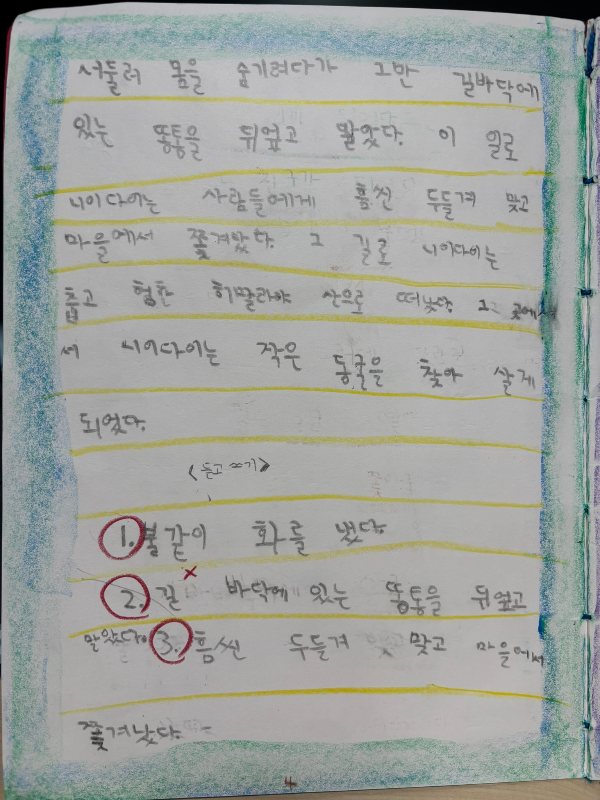 서둘러 몸을 숨기려다가 그만 길바닥에
있는 똥통을 뒤엎고 말았다. 이 일로
니이다이는 사람들에게 흠씬 두들겨 맞고
마을에서 쫓겨났다. 그 길로 니이다이는
춥고 험한 히말라야 산으로 떠났다. 그 곳에서
서 니이다이는 작은 동굴을 찾아 살게
되었다.
<듣고 쓰기>
1. 불같이 화를 냈다.
2. 길 바닥에 있는 똥통을 뒤엎고
말았다. 3. 흠씬 두들겨 맞고 마을에서
쫓겨났다.
4